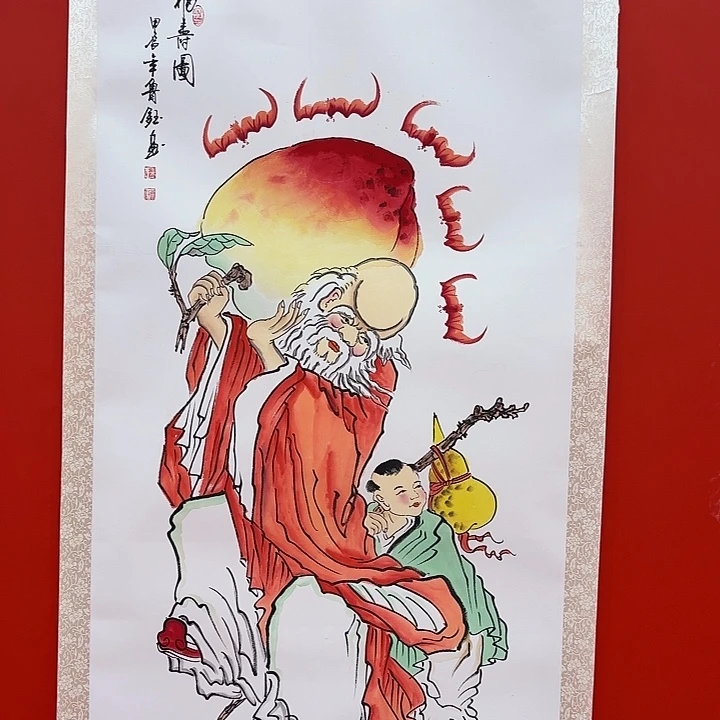 福壽圖
甲辰年魯鈺畫